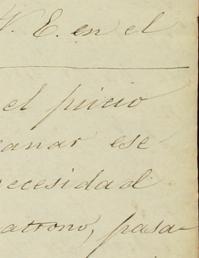 V. E. en el
el juicio
sanar ese
necesidad
patrono, pasa-